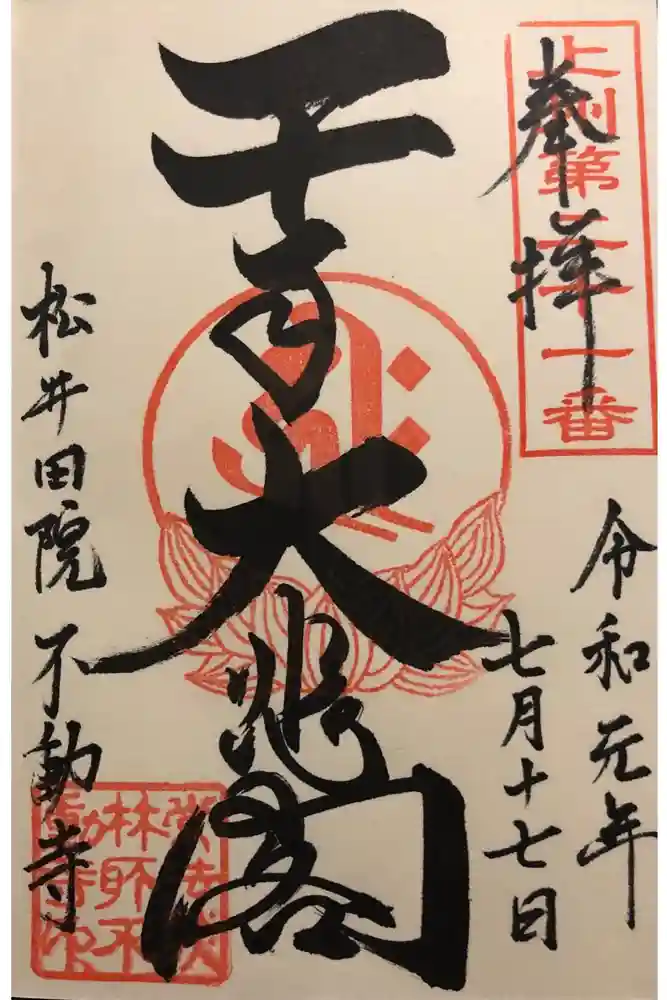 奉拝
上州第二十一番
令和元年
七月十七日
千手大悲閣
松井田院 不動寺